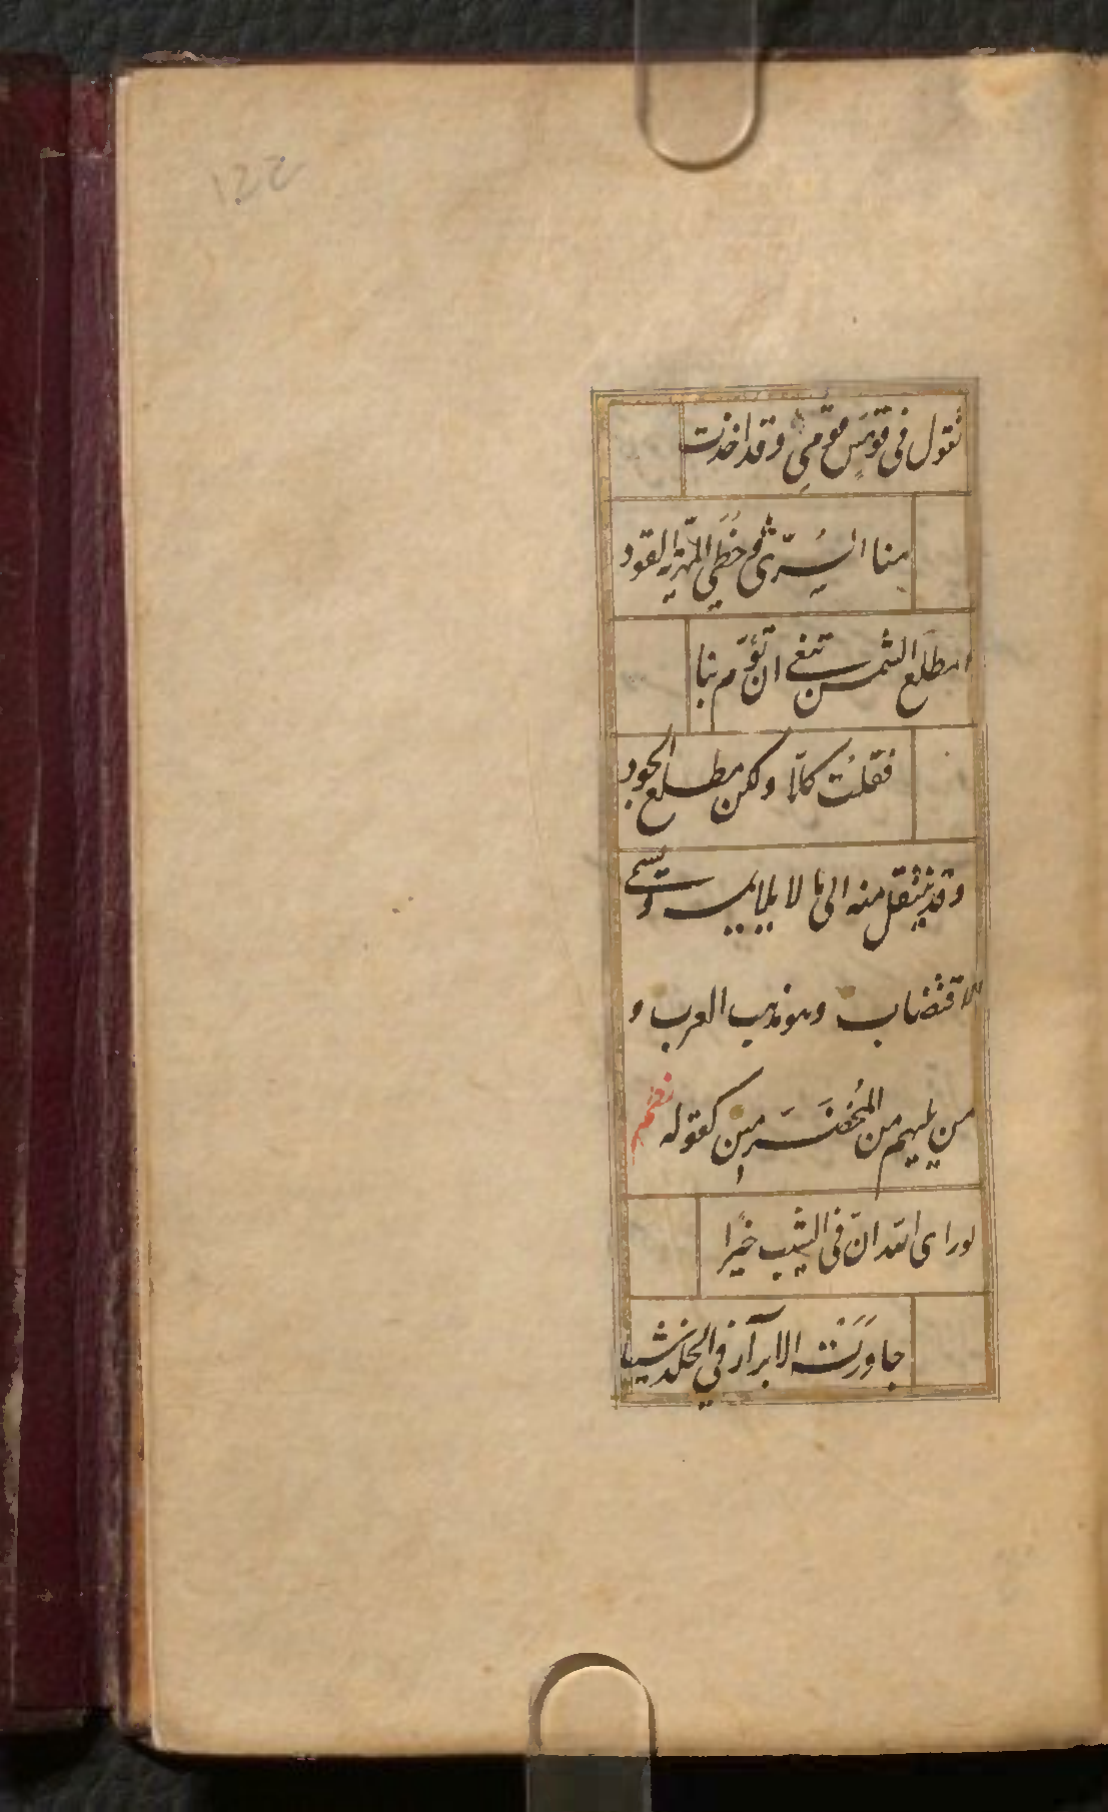 122
تقول فی قومَسٍ قومی وقد اخذت
منا السُّرّیٰ وخُطَی المَهْرِیّة القود
امطلَع الشمس تبغی ان تؤمّ بنا
فقلت کلّا ولکن مطلع الجود
وقد ینتقل منه الی ما لا یلایمه ویسمّی
الاقتضاب وهو مذهب العرب و
من یلیهم من المُخَضْرَمین کقوله
لو رای الله انّ فی الشیب خیرًا
جاوَرَتْه الابرار فی الخلد شیبا